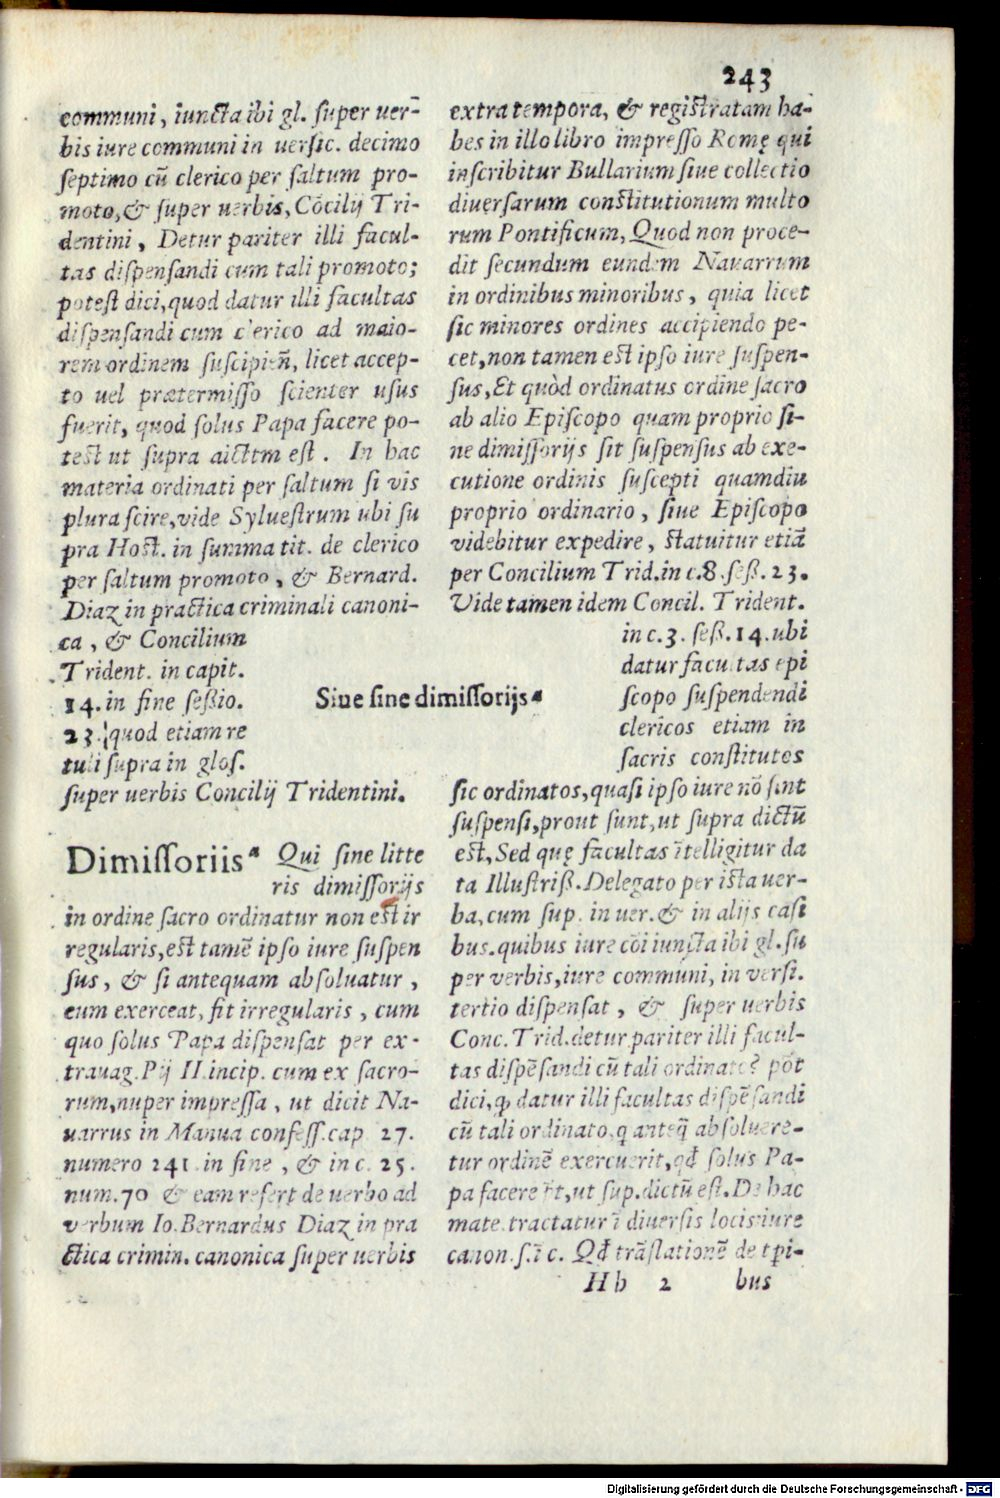 243
communi, iuncta ibi gl. super uer-
bis iure communi in uersic. decimo
septimo cū clerico per saltum pro-
moto, & super uerbis, Cōcilij Tri-
dentini, Detur pariter illi facul-
tas dispensandi cum tali promoto;
potest dici, quod datur illi facultas
dispensandi cum clerico ad maio-
rem ordinem suscipien̄, licet accep-
to uel prætermisso scienter usus
fuerit, quod solus Papa facere po-
test ut supra dictum est. In hac
materia ordinati per saltum si vis
plura scire, vide Syluestrum ubi su
pra Host. in summa tit. de clerico
per saltum promoto, & Bernard.
Diaz in practica criminali canoni-
ca, & Concilium
Trident. in capit.
14. in fine seßio.
23. quod etiam re
tuli supra in glos.
super uerbis Concilij Tridentini.
Siue sine dimissorijs.
Dimissoriis. Qui sine litte
ris dimissorijs
in ordine sacro ordinatur non est ir
regularis, est tamē ipso iure suspen
sus, & si antequam absoluatur,
eum exerceat, fit irregularis, cum
quo solus Papa dispensat per ex-
trauag. Pij II. incip. cum ex sacro-
rum, nuper impressa, ut dicit Na-
uarrus in Manua confess. cap 27.
numero 241. in fine, & in c. 25.
num. 70 & eam refert de uerbo ad
verbum Io. Bernardus Diaz in pra
ctica crimin. canonica super uerbis
extra tempora, & registratam ha-
bes in illo libro impresso Romę qui
inscribitur Bullarium siue collectio
diuersarum constitutionum multo
rum Pontificum, Quod non proce-
dit secundum eundem Nauarrum
in ordinibus minoribus, quia licet
sic minores ordines accipiendo pe-
cet, non tamen est ipso iure suspen-
sus, Et quòd ordinatus ordine sacro
ab alio Episcopo quam proprio si-
ne dimissorijs sit suspensus ab exe-
cutione ordinis suscepti quamdiu
proprio ordinario, siue Episcopo
videbitur expedire, statuitur etiā
per Concilium Trid. in c. 8. seß. 23.
Vide tamen idem Concil. Trident.
in c. 3. seß. 14. ubi
datur facultas epi
scopo suspendendi
clericos etiam in
sacris constitutos
sic ordinatos, quasi ipso iure nō sint
suspensi, prout sunt, ut supra dictū
est, Sed quę facultas ītelligitur da
ta Illustriß. Delegato per ista uer-
ba, cum sup. in uer. & in alijs casi
bus. quibus iure cōi iuncta ibi gl. su
per verbis, iure communi, in versi.
tertio dispensat, & super uerbis
Conc. Trid. detur pariter illi facul-
tas dispēsandi cū tali ordinato? pōt
dici, ꝙ datur illi facultas dispēsandi
cū tali ordinato, q anteq̄ absoluere-
tur ordinē exercuerit, qđ solus Pa-
pa facere pōt, ut sup. dictū est. De hac
mate. tractatur ī diuersis locis iure
canon. s. ī c. Qđ trāslationē de tp̄i-
H h 2 bus
Digitalisierung gefördert durch die Deutsche Forschungsgemeinschaft - DFG